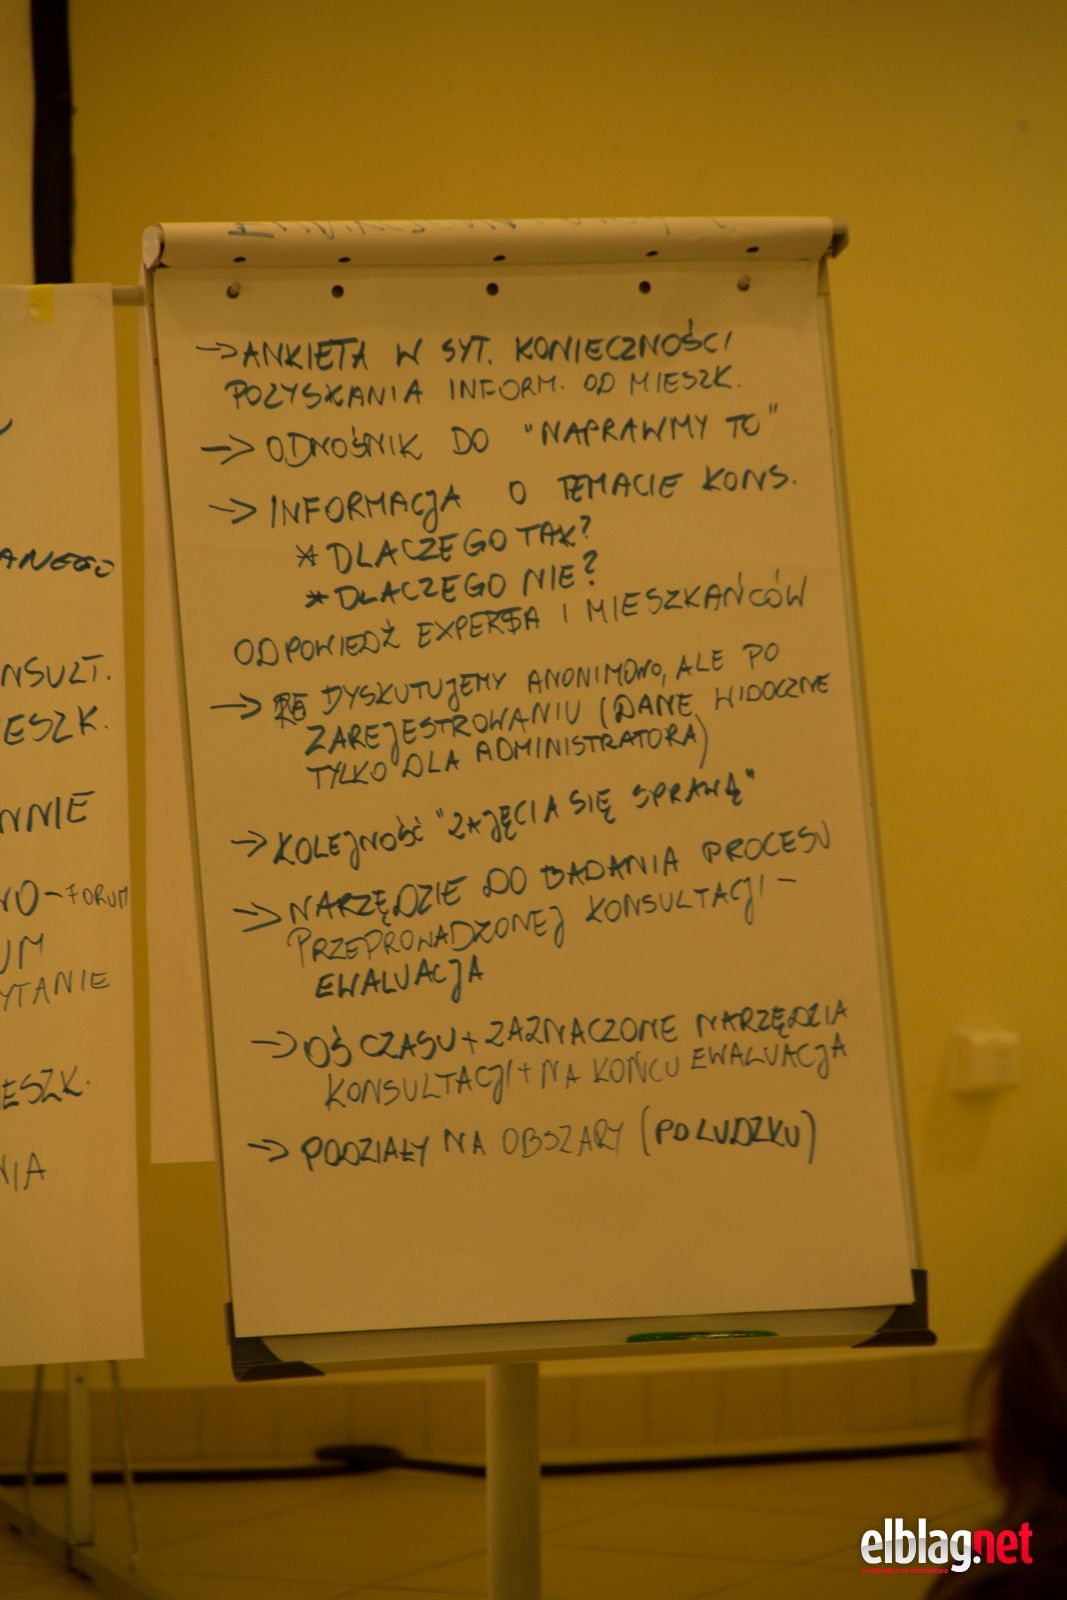 → ANKIETA W SYT. KONIECZNOŚCI
POZYSKANIA INFORM. OD MIESZK.
→ ODNOŚNIK DO "NAPRAWMY TO"
→ INFORMACJA O TEMACIE KONS.
* DLACZEGO TAK?
* DLACZEGO NIE?
ODPOWIEDŹ EXPERTA I MIESZKAŃCÓW
→ DYSKUTUJEMY ANONIMOWO, ALE PO
ZAREJESTROWANIU (DANE WIDOCZNE
TYLKO DLA ADMINISTRATORA)
→ KOLEJNOŚĆ "ZAJĘCIA SIĘ SPRAWĄ"
→ NARZĘDZIE DO BADANIA PROCESU
PRZEPROWADZONEJ KONSULTACJI -
EWALUACJA
→ OŚ CZASU + ZAZNACZONE NARZĘDZIA
KONSULTACJI + NA KOŃCU EWALUACJA
→ PODZIAŁY NA OBSZARY (PO LUDZKU)
ANEGO
NSULT.
ESZK.
NNIE
NO - FORUM
UM
YTANIE
ESZK.
NIA
elblag.net